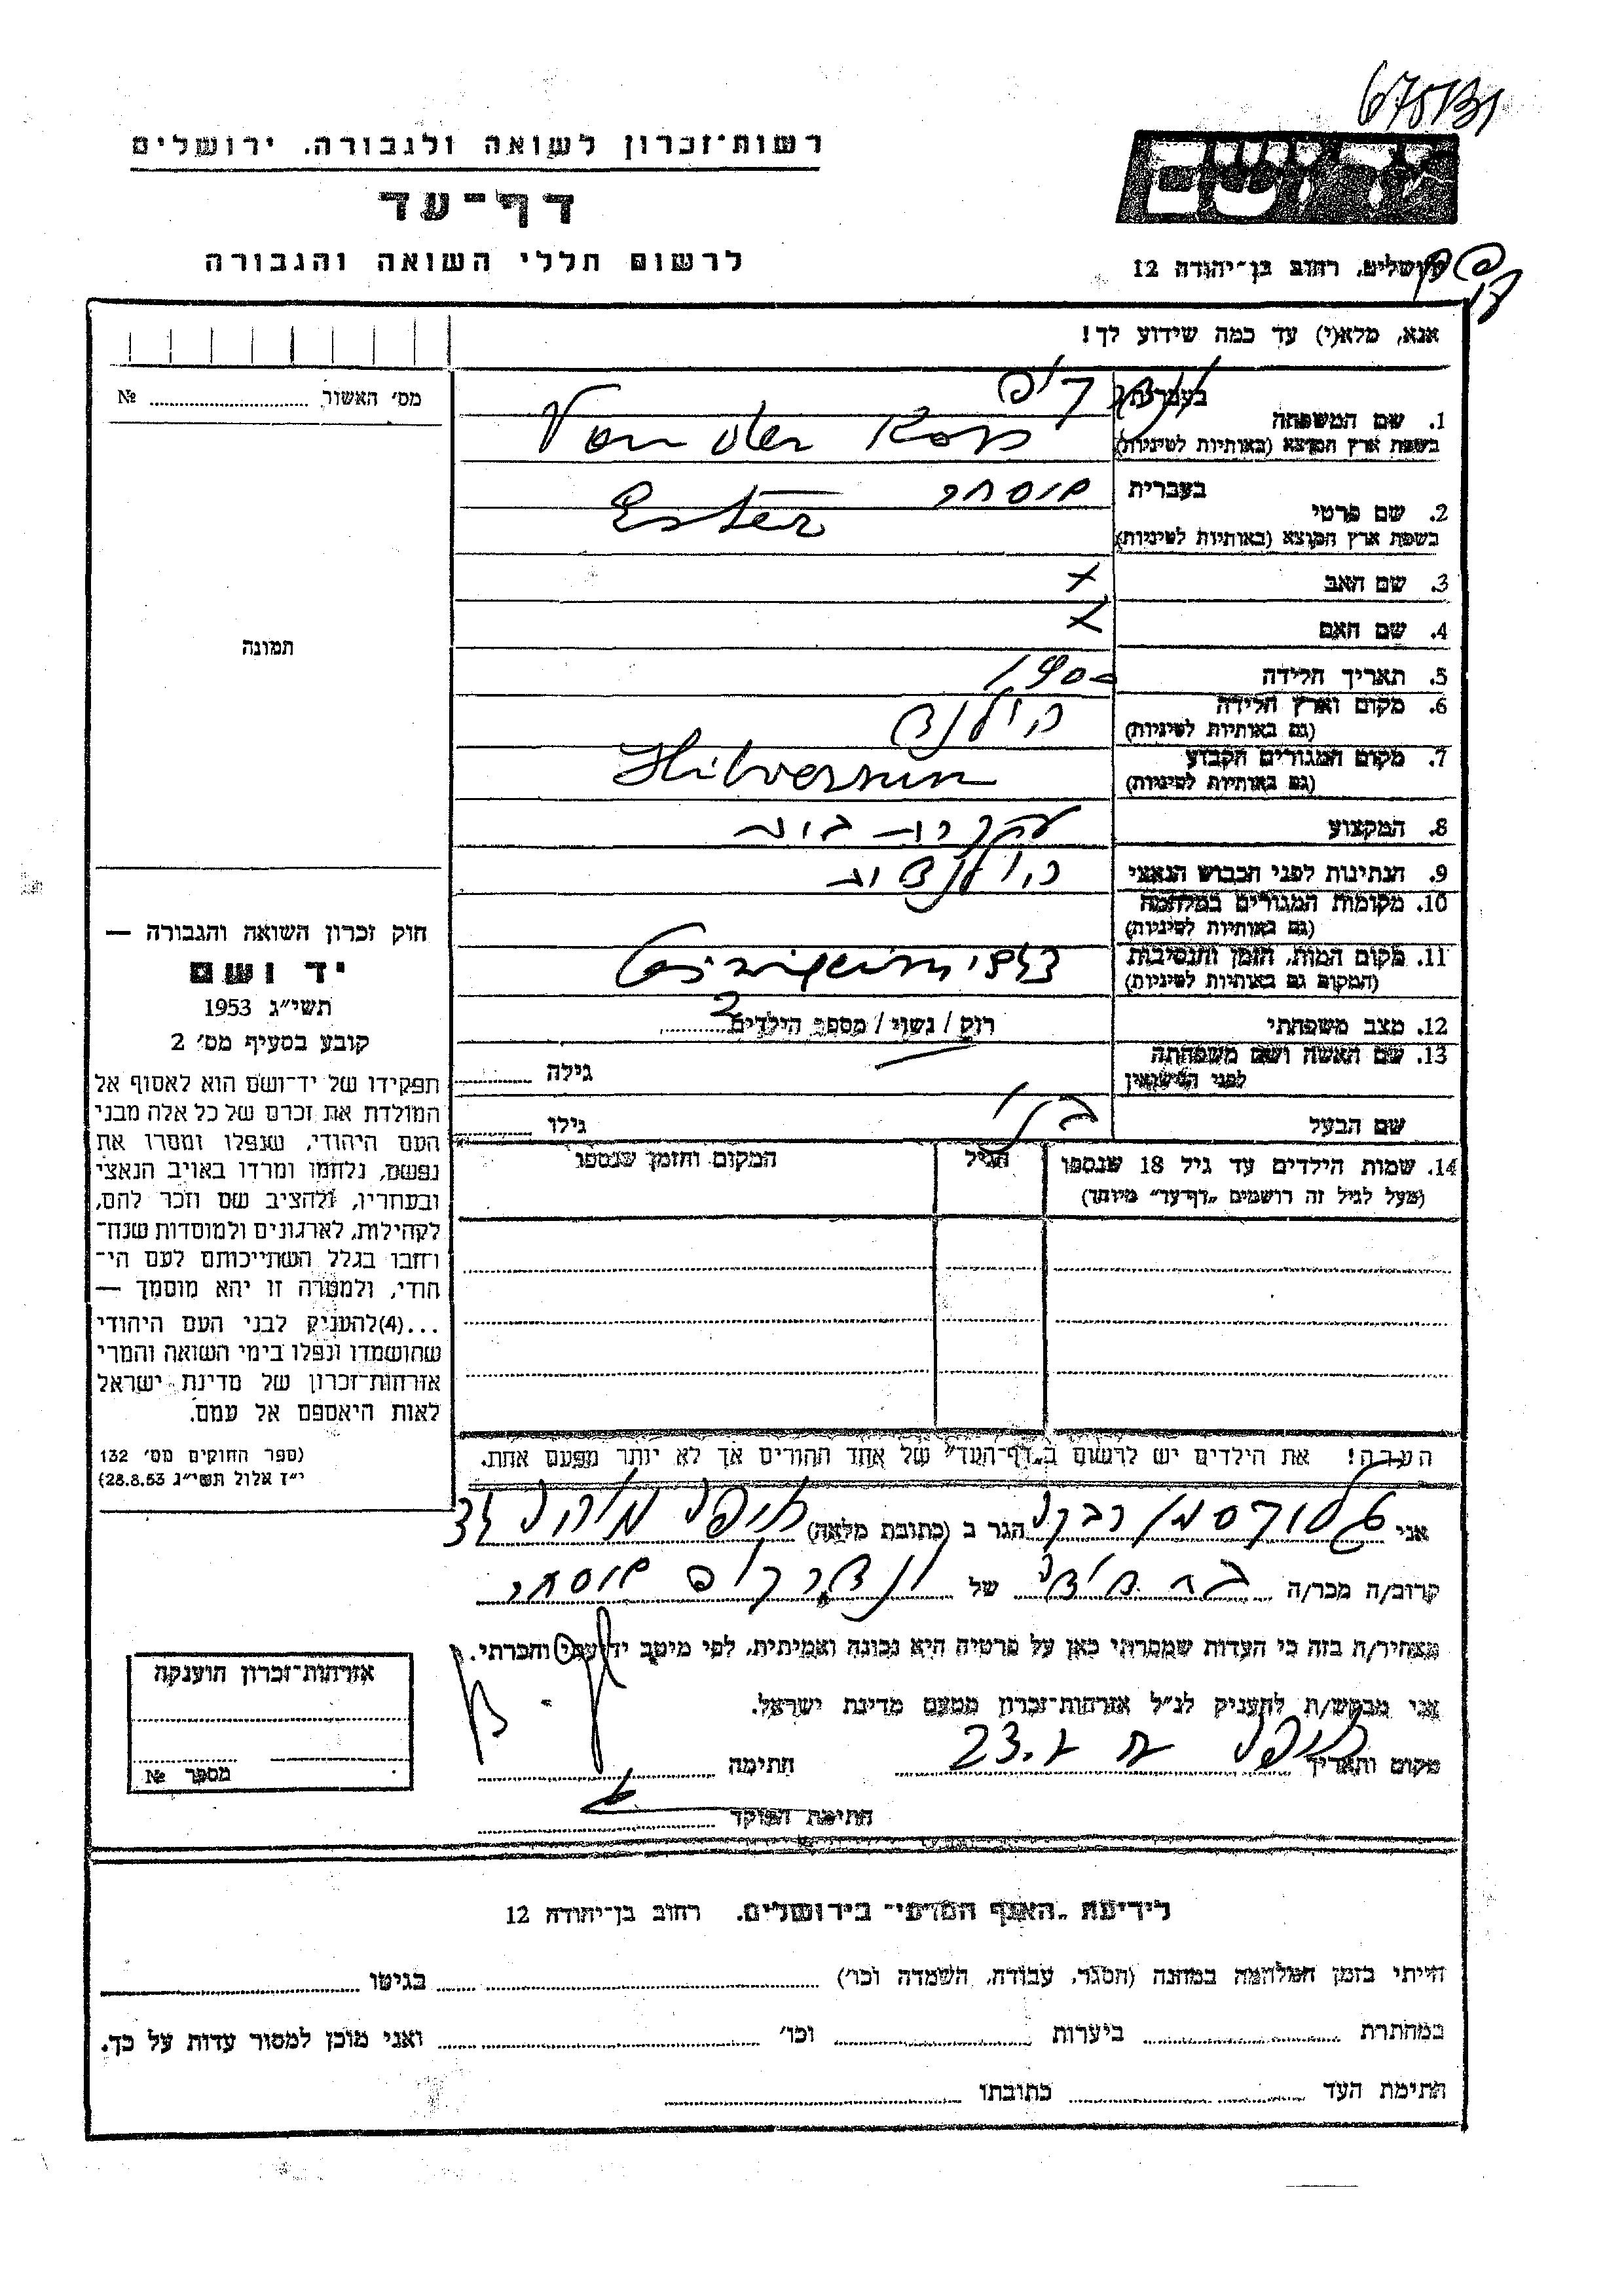 רשות־זכרון לשואה ולגבורה. ירושלים
דף־עד
לרשום חללי השואה והגבורה
יד ושם
ירושלים, רחוב בן־יהודה 12
אנא, מלא(י) עד כמה שידוע לך!
מס׳ האשור № 
1. שם המשפחה בעברית
בשפת ארץ המוצא (באותיות לטיניות) Van der
2. שם פרטי בעברית
בשפת ארץ המוצא (באותיות לטיניות) Ester
3. שם האב
4. שם האם
5. תאריך הלידה 1900
6. מקום וארץ הלידה הולנד
(גם באותיות לטיניות)
7. מקום המגורים הקבוע
(גם באותיות לטיניות)
8. המקצוע עקרת בית
9. הנתינות לפני הכבוש הנאצי הולנדית
10. מקומות המגורים במלחמה
(גם באותיות לטיניות)
11. מקום המות, הזמן והנסיבות 1943
(המקום גם באותיות לטיניות)
12. מצב משפחתי רווק / נשוי / מספר הילדים 2
13. שם האשה ושם משפחתה גילה
לפני הנישואין
שם הבעל גילו
14. שמות הילדים עד גיל 18 שנספו הגיל המקום והזמן שנספו
(מעל לגיל זה רושמים „דף־עד״ מיוחד)
הערה! את הילדים יש לרשום ב„דף־העד״ של אחד ההורים אך לא יותר מפעם אחת.
תמונה
חוק זכרון השואה והגבורה —
יד ושם
תשי״ג 1953
קובע בסעיף מס׳ 2
תפקידו של יד־ושם הוא לאסוף אל
המולדת את זכרם של כל אלה מבני
העם היהודי, שנפלו ומסרו את
נפשם, נלחמו ומרדו באויב הנאצי
ובעוזריו, ולהציב שם וזכר להם,
לקהילות, לארגונים ולמוסדות שנח־
רחבו בגלל השתייכותם לעם הי־
הודי, ולמטרה זו יהא מוסמך —
...(4)להעניק לבני העם היהודי
שהושמדו ונפלו בימי השואה והמרי
אזרחות־זכרון של מדינת ישראל
לאות היאספם אל עמם.
(ספר החוקים מס׳ 132
י״ז אלול תשי״ג 28.8.53)
אני רבקה הגר ב (כתובת מלאה) חיפה
קרוב/ה מכר/ה של
מצהיר/ה בזה כי העדות שמסרתי כאן על פרטיה היא נכונה ואמיתית, לפי מיטב ידיעתי והכרתי.
אני מבקש/ת להעניק לנ״ל אזרחות־זכרון מטעם מדינת ישראל.
מקום ותאריך חיפה 23. חתימה
חתימת הפוקד
אזרחות־זכרון הוענקה
מספר №
לידיעת „האגף המדעי״ בירושלים. רחוב בן־יהודה 12
הייתי בזמן המלחמה במחנה (הסגר, עבודה, השמדה וכו׳) בגיטו
במחתרת ביערות וכו׳ ואני מוכן למסור עדות על כך.
חתימת העד כתובתו